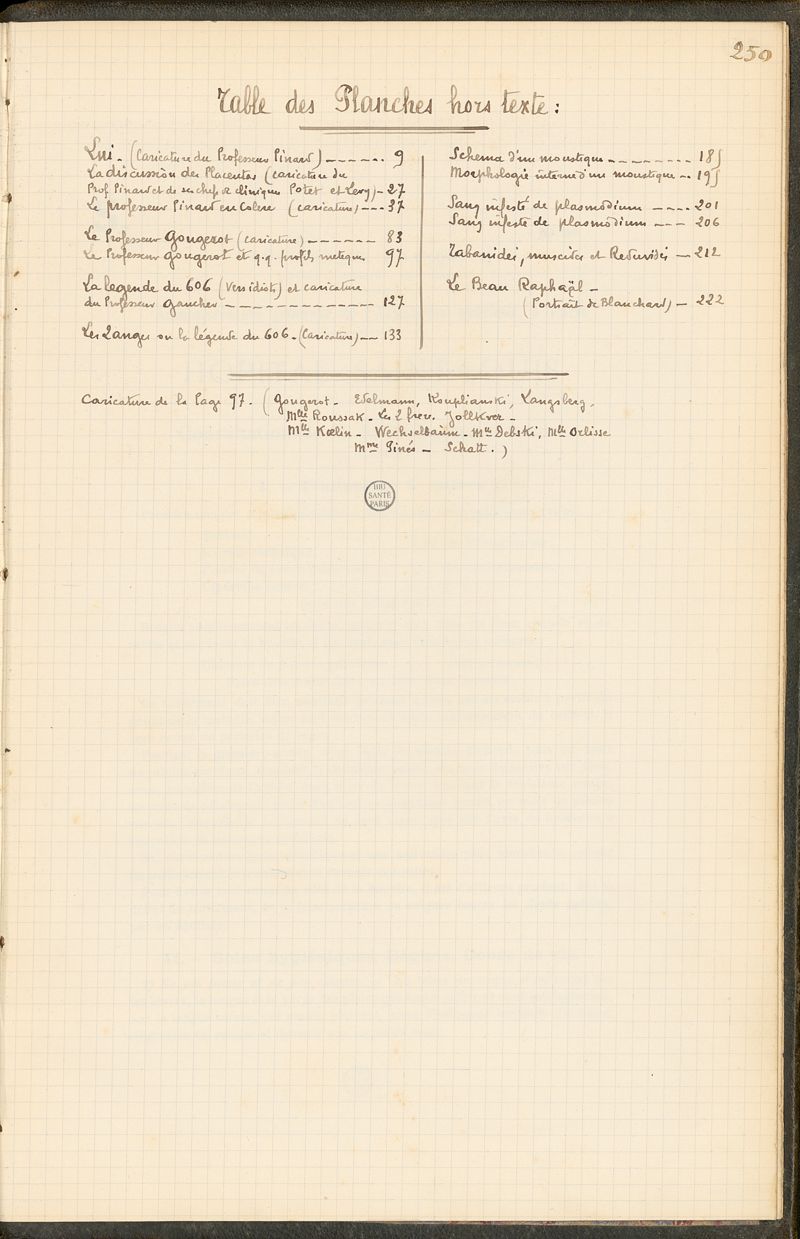 250
Table des Planches hors texte :
Lui - (Caricature du Professeur Pinard) ------- 9
La discussion des Placentas (caricature du
Prof Pinard et de ses chefs de clinique Potet et Levy) - 27
Le professeur Pinard en Colère (caricature) --- 37
Le Professeur Gougerot (caricature) ------- 83
Le Professeur Gougerot et q.q. profils meteques 97
La legende du 606 (Vers idiots) et caricature
du Professeur Gaucher ------------ 127
Les 2 anges ou la légende du 606 - (Caricature) -- 133
Schema d'un moustique --------- 185
Morphologie interne d'un moustique -- 195
Sang infesté de plasmodium ---- 201
Sang infeste de plasmodium --- 206
Tabanides, muscides et Reduvides - 212
Le Beau Raphaël -
(Portrait de Blanchard) - 222
Caricature de la Page 97. (Gougerot - Edelmann, Kouplianski, Langsberg,
Mlle Roussak - Les 2 frer. Jollkver -
Mlle Kœlin - Wechselbaum - Mlle Debski, Mlle Orlisse
Mme Pinés - Schatt. )
BIU
SANTÉ
PARIS